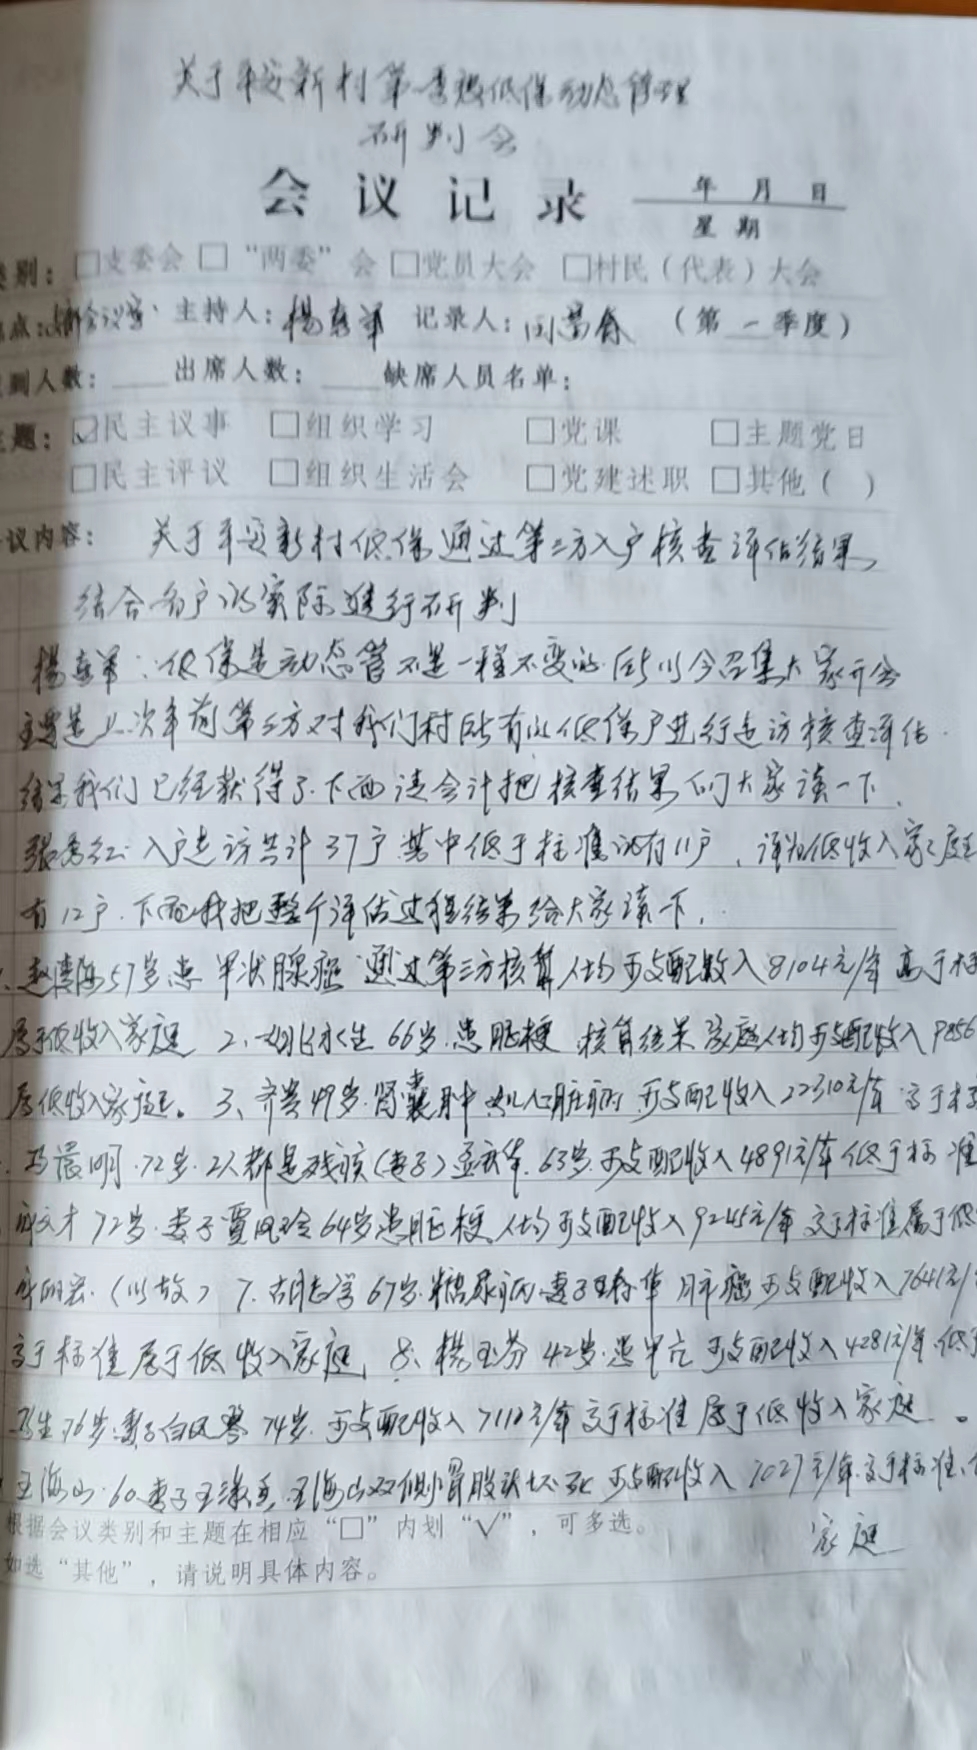 关于平安新村第一季度低保动态管理
研判会
会议记录 年 月 日
星期
类别：□支委会 □“两委”会 □党员大会 □村民（代表）大会
地点：会议室 主持人：杨 军 记录人：（第一季度）
到人数：____出席人数：____缺席人员名单：
主题：☑民主议事 □组织学习 □党课 □主题党日
□民主评议 □组织生活会 □党建述职 □其他（ ）
议内容： 关于平安新村低保通过第三方入户核查评估结果，
结合各户的实际进行研判
杨 军：低保是动态管不是一程不变的.所以今召集大家开会
主要是上次年前第三方对我们村所有的低保户进行走访核查评估.
结果我们已经获得了.下面请会计把核查结果向大家读一下.
张秀红：入户走访共计37户.其中低于标准的有11户，评为低收入家庭
有12户.下面我把整个评估过程结果给大家读一下.
57岁患甲状腺癌 通过第三方核算人均可支配收入8104元/年 高于标
属于低收入家庭 2、 永生 66岁.患脑梗 核算结果家庭人均可支配收入9856
属低收入家庭。3、齐 49岁.肾囊肿 心脏病 可支配收入22310元/年 高于标
马 明.72岁.2人都是残疾(妻子)孟 华.63岁.可支配收入4891元/年 低于标准
文才 72岁.妻子贾凤玲64岁患脑梗 人均可支配收入9245元/年 高于标准属于低
（以故） 7、胡志学 67岁.糖尿病.妻子 华 肺癌 可支配收入7641元/
高于标准属于低收入家庭 8、杨玉芬 42岁.患甲亢 可支配收入4281元/年.低于
生76岁.妻子白凤琴 74岁.可支配收入7110元/年 高于标准 属于低收入家庭。
王海山.60.妻子王 .王海山双侧骨股头坏死 可支配收入7027元/年.高于标准、
根据会议类别和主题在相应“□”内划“√”，可多选。
家庭
如选“其他”，请说明具体内容。